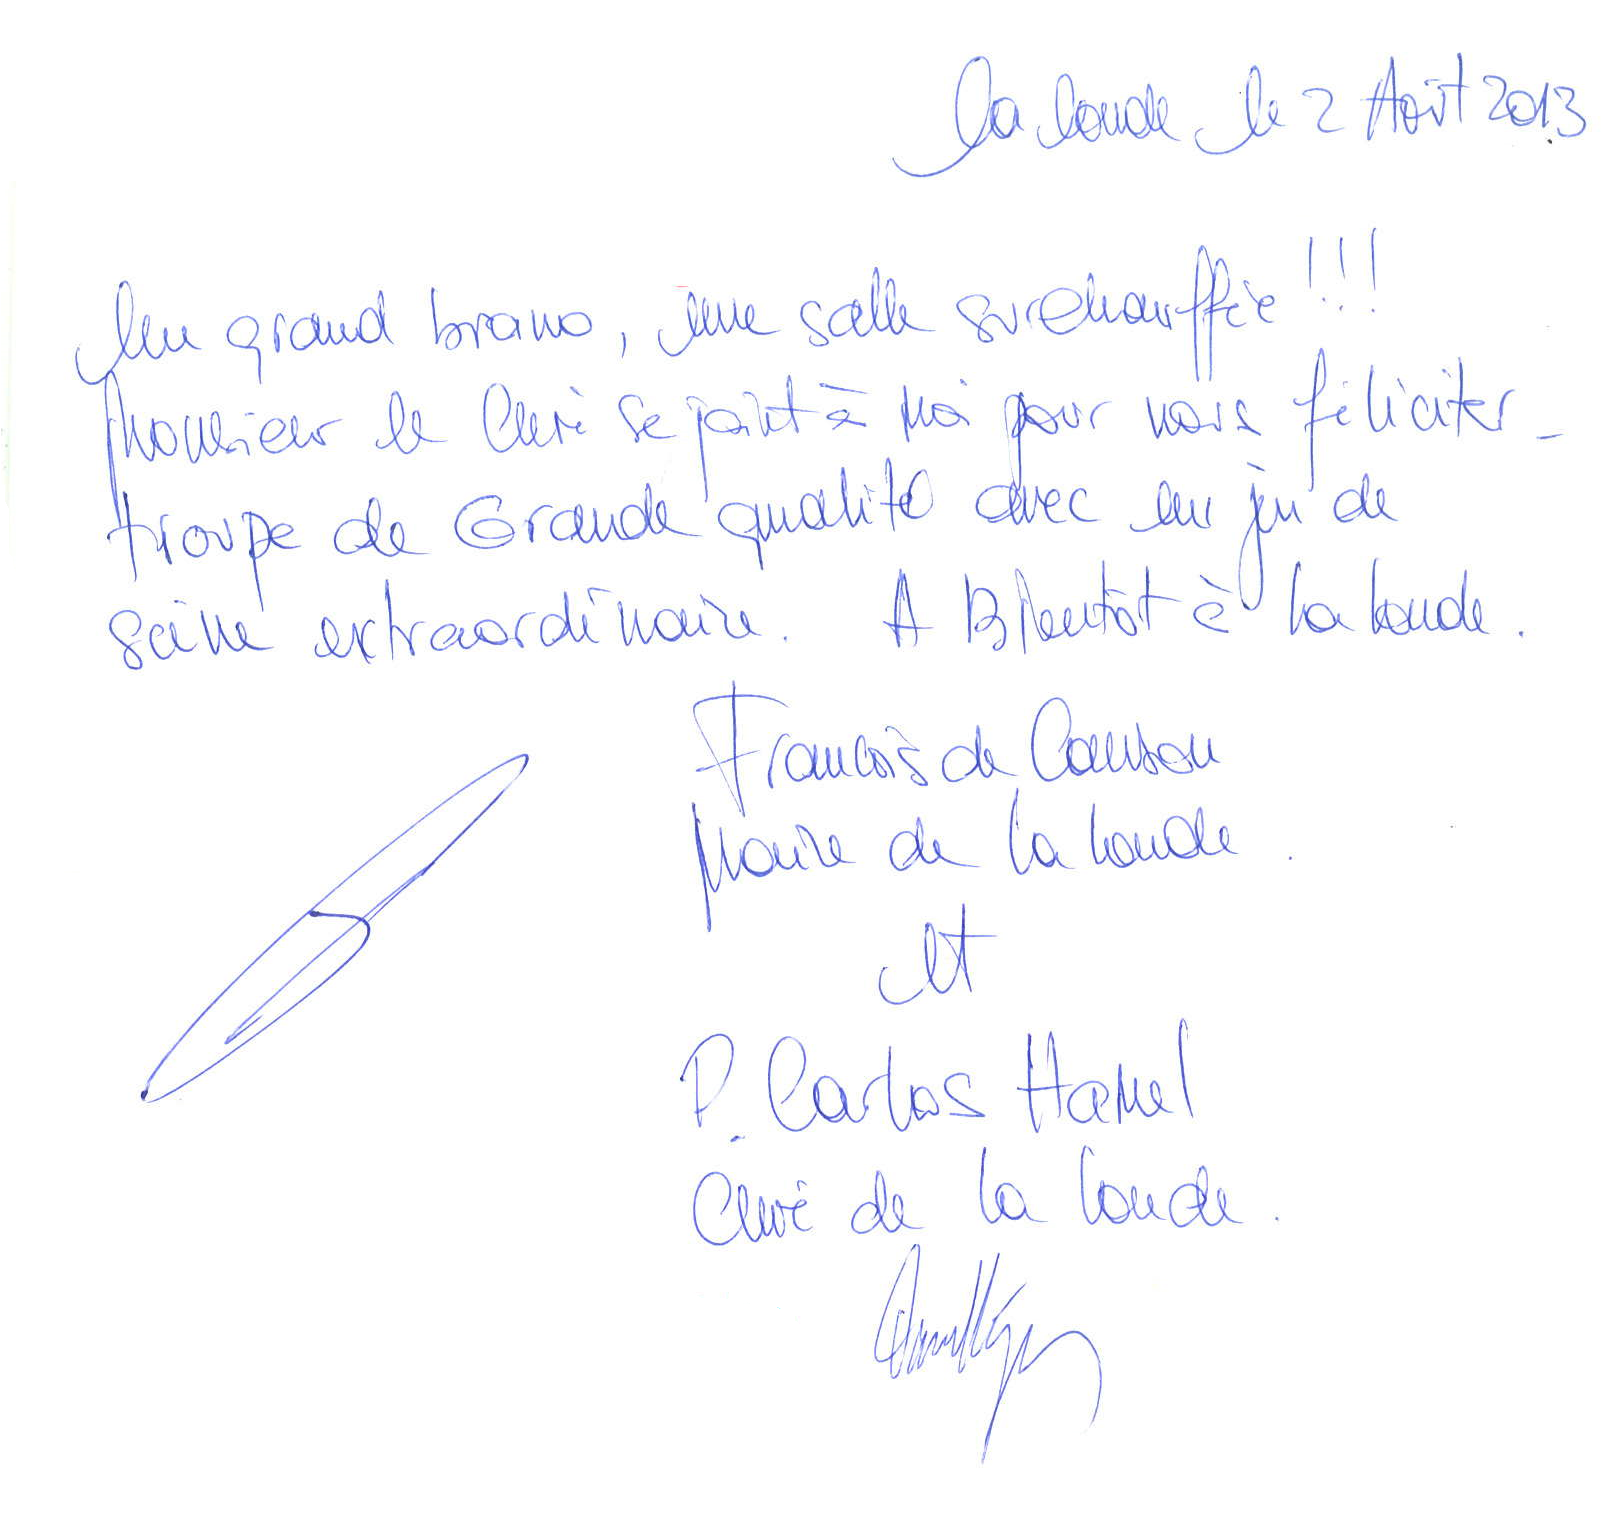 La Londe le 2 Août 2013
Un grand bravo, une salle surchauffée !!!
Monsieur le Curé se joint à moi pour vous féliciter_
troupe de Grande qualité avec un jeu de
scène extraordinaire. A Bientôt à La Londe.
Francois de Canson
Maire de La Londe.
et
P. Carlos Hamel
Curé de La Londe.